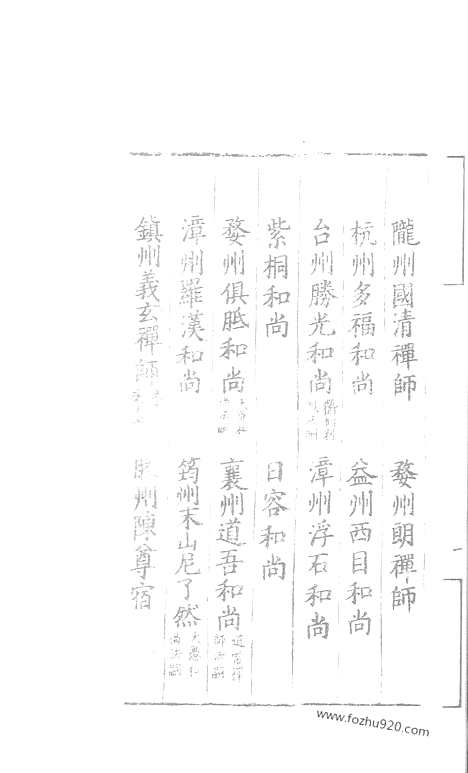 隴州國清禪師　婺州朗禪師
杭州多福和尚　益州西目和尚
台州勝光和尚　漳州浮石和尚
紫桐和尚　日容和尚
婺州俱胝和尚　襄州道吾和尚
漳州羅漢和尚　筠州末山尼了然
鎮州義玄禪師　州陳尊宿
www.fozhu920.com